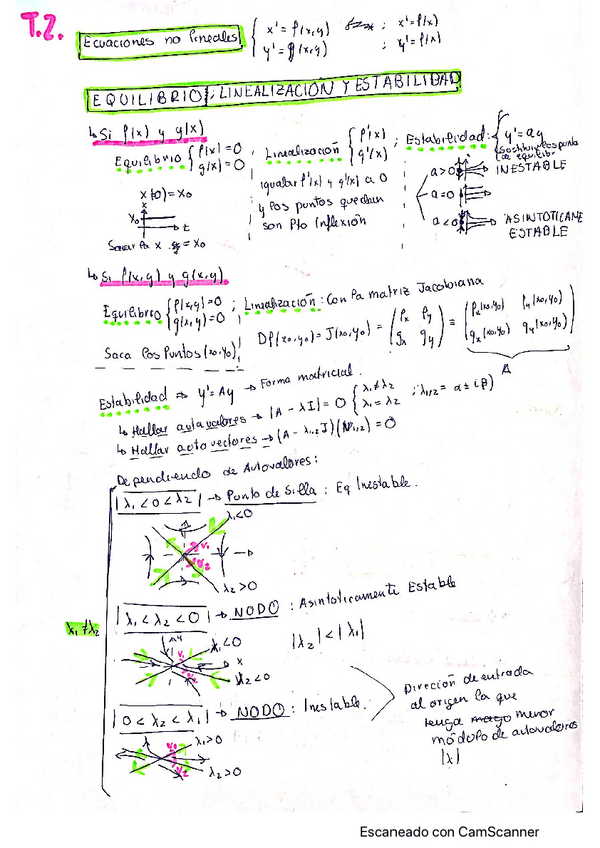 T.2.
Ecuaciones no lineales { x' = f(x,y) ; x' = f(x)
y' = g(x,y) ; y' = f(x)
EQUILIBRIO; LINEALIZACIÓN Y ESTABILIDAD
↳ Si f(x) y g(x)
Equilibrio { f(x)=0 ; Linealización { f'(x) ; Estabilidad: { y' = ay
g(x)=0 g'(x) Sostituir los puntos de equilibr
x(0) = x0 igualar f'(x) y g'(x) a 0 a>0 INESTABLE
x0 t y los puntos quedan a=0
Sacar la x = x0 son Pto Inflexión a<0 ASINTOTICAME
ESTABLE
↳ Si f(x,y) y g(x,y)
Equilibrio { f(x,y)=0 ; Linealización: Con la matriz Jacobiana
g(x,y)=0
Saca los Puntos (x0,y0) Df(x0,y0) = J(x0,y0) = ( fx fy ) = ( fx(x0,y0) fy(x0,y0) )
( gx gy ) ( gx(x0,y0) gy(x0,y0) )
A
Estabilidad ⇒ y' = Ay → Forma matricial.
↳ Hallar autovalores → |A - λI| = 0 { λ1 ≠ λ2 ; λ1,2 = α ± iβ)
λ1 = λ2
↳ Hallar autovectores → (A - λ1,2 I)(N1,2) = 0
Dependiendo de Autovalores:
| λ1 < 0 < λ2 | → Punto de Silla : Eq Inestable.
λ1<0
v1
v2
λ2>0
λ1 ≠ λ2
| λ1 < λ2 < 0 | → NODO : Asintoticamente Estable
λ1<0 |λ2| < |λ1|
v1 x
λ2<0
| 0 < λ2 < λ1 | → NODO : Inestable.
λ1>0
v2
λ2>0
Direción de entrada
al origen la que
tenga mayo menor
módulo de autovalores
|λ|
Escaneado con CamScanner